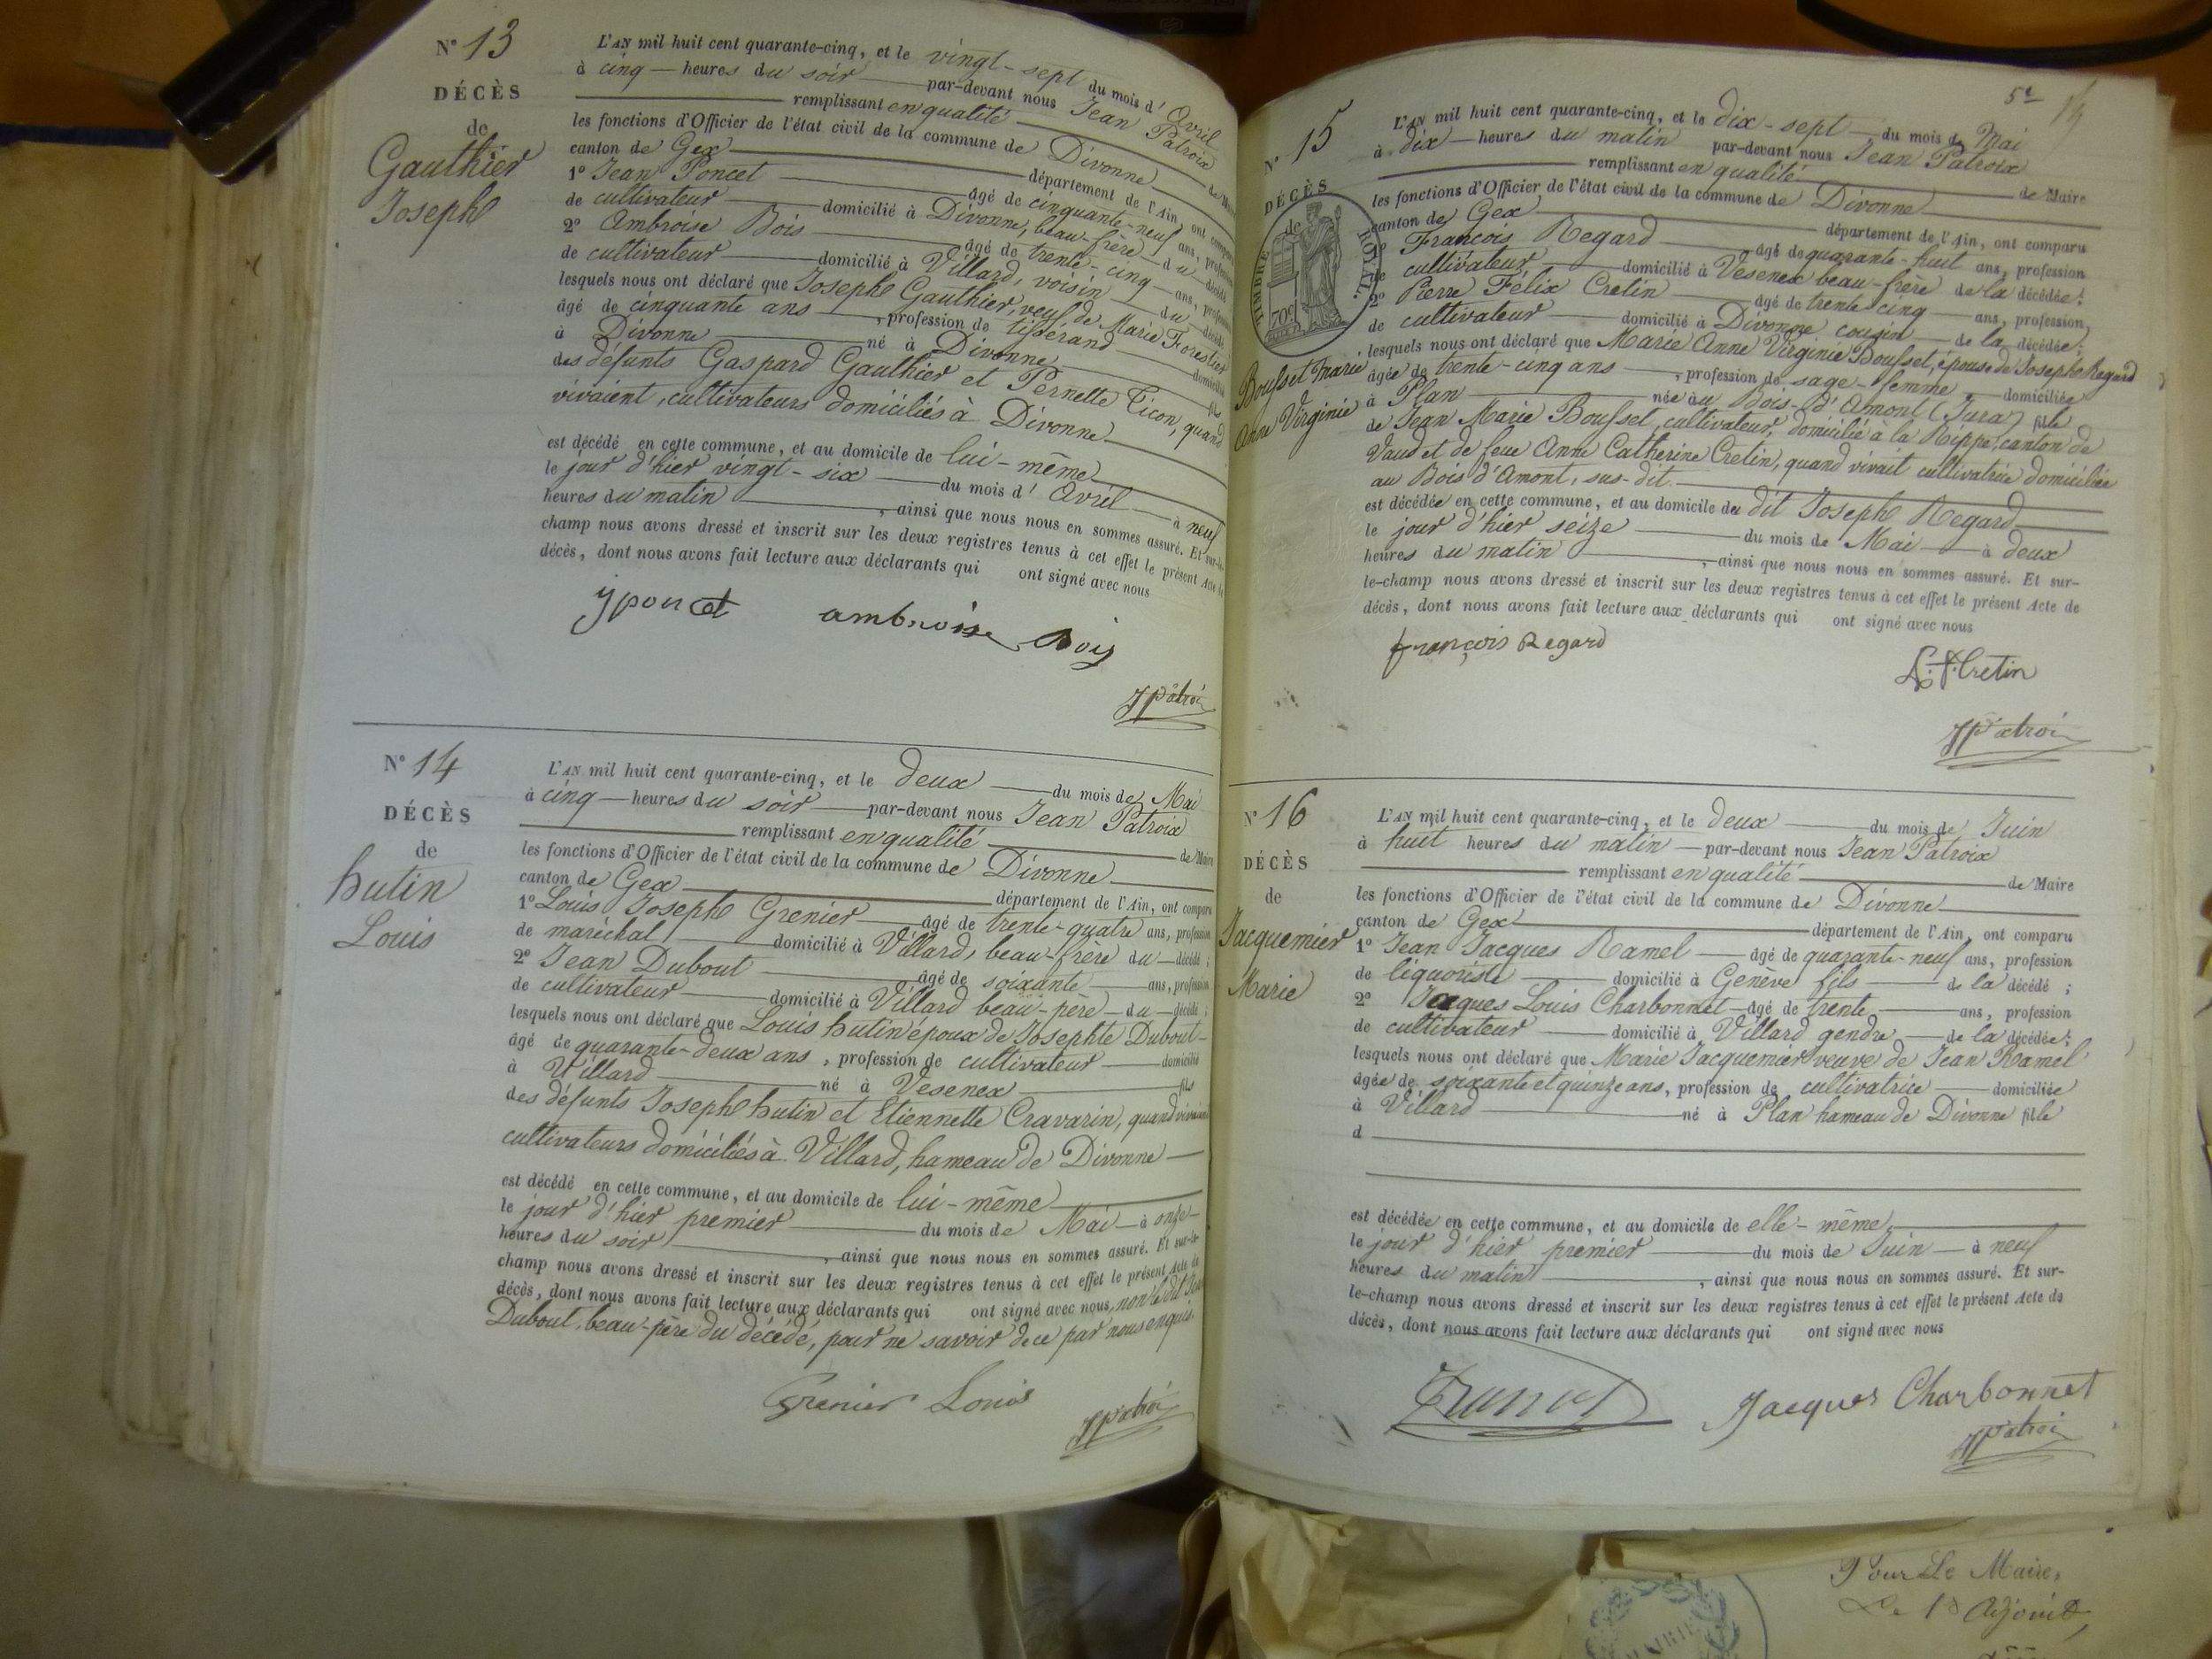 N° 13
DÉCÈS
de
Gauthier
Joseph
L'AN mil huit cent quarante-cinq, et le vingt-sept du mois d'Avril
à cinq heures du soir par-devant nous Jean Patroix
remplissant en qualité de Maire
les fonctions d'Officier de l'état civil de la commune de Divonne
canton de Gex département de l'Ain, ont comparu
1° Jean Poncet âgé de cinquante-neuf ans, profession
de cultivateur domicilié à Divonne, beau-frère du décédé
2° Ambroise Bois âgé de trente-cinq ans, profession
de cultivateur domicilié à Villard, voisin du décédé
lesquels nous ont déclaré que Joseph Gauthier, veuf de Marie Forestier
âgé de cinquante ans, profession de tisserand domicilié
à Divonne né à Divonne fils
des défunts Gaspard Gauthier et Pernette Ticon, quand
vivaient, cultivateurs domiciliés à Divonne
est décédé en cette commune, et au domicile de lui-même
le jour d'hier vingt-six du mois d'Avril à neuf
heures du matin, ainsi que nous nous en sommes assuré. Et sur-le-
champ nous avons dressé et inscrit sur les deux registres tenus à cet effet le présent Acte de
décès, dont nous avons fait lecture aux déclarants qui ont signé avec nous
jponcet ambroise Bois
JPatroix
N° 14
DÉCÈS
de
hutin
Louis
L'AN mil huit cent quarante-cinq, et le deux du mois de Mai
à cinq heures du soir par-devant nous Jean Patroix
remplissant en qualité de Maire
les fonctions d'Officier de l'état civil de la commune de Divonne
canton de Gex département de l'Ain, ont comparu
1° Louis Joseph Grenier âgé de trente-quatre ans, profession
de maréchal domicilié à Villard, beau-frère du décédé;
2° Jean Dubout âgé de soixante ans, profession
de cultivateur domicilié à Villard beau-père du décédé;
lesquels nous ont déclaré que Louis hutin époux de Josephte Dubout
âgé de quarante-deux ans, profession de cultivateur domicilié
à Villard né à Vesenex fils
des défunts Joseph hutin et Etiennette Cravarin, quand vivaient
cultivateurs domiciliés à Villard, hameau de Divonne
est décédé en cette commune, et au domicile de lui-même
le jour d'hier premier du mois de Mai à onze
heures du soir, ainsi que nous nous en sommes assuré. Et sur-le-
champ nous avons dressé et inscrit sur les deux registres tenus à cet effet le présent Acte de
décès, dont nous avons fait lecture aux déclarants qui ont signé avec nous, non le dit Jean
Dubout, beau-père du décédé, pour ne savoir de ce par nous enquis.
Grenier Louis
JPatroix
5e
N° 15
DÉCÈS
de
TIMBRE ROYAL.
70c
Bousset Marie
Anne Virginie
L'AN mil huit cent quarante-cinq, et le dix-sept du mois de Mai
à dix heures du matin par-devant nous Jean Patroix
remplissant en qualité de Maire
les fonctions d'Officier de l'état civil de la commune de Divonne
canton de Gex département de l'Ain, ont comparu
1° François Regard âgé de quarante-huit ans, profession
de cultivateur domicilié à Vesenex beau-frère de la décédée;
2° Pierre Félix Cretin âgé de trente cinq ans, profession
de cultivateur domicilié à Divonne cousin de la décédée;
lesquels nous ont déclaré que Marie Anne Virginie Bousset, épouse de Joseph Regard
âgée de trente-cinq ans, profession de sage-femme domiciliée
à Plan née au Bois-d'Amont (Jura) fille
de Jean Marie Bousset, cultivateur, domicilié à la Rippe, canton de
Vaud et de feue Anne Catherine Cretin, quand vivait cultivatrice domiciliée
au Bois d'Amont, sus-dit.
est décédée en cette commune, et au domicile du dit Joseph Regard
le jour d'hier seize du mois de Mai à deux
heures du matin, ainsi que nous nous en sommes assuré. Et sur-
le-champ nous avons dressé et inscrit sur les deux registres tenus à cet effet le présent Acte de
décès, dont nous avons fait lecture aux déclarants qui ont signé avec nous
françois Regard
Cretin
JPatroix
N° 16
DÉCÈS
de
Jacquemier
Marie
L'AN mil huit cent quarante-cinq, et le deux du mois de Juin
à huit heures du matin par-devant nous Jean Patroix
remplissant en qualité de Maire
les fonctions d'Officier de l'état civil de la commune de Divonne
canton de Gex département de l'Ain, ont comparu
1° Jean Jacques Ramel âgé de quarante-neuf ans, profession
de liquoriste domicilié à Genève fils de la décédé;
2° Jacques Louis Charbonnet âgé de trente ans, profession
de cultivateur domicilié à Villard gendre de la décédée;
lesquels nous ont déclaré que Marie Jacquemier veuve de Jean Ramel
âgée de soixante et quinze ans, profession de cultivatrice domiciliée
à Villard né à Plan hameau de Divonne fille
d
est décédée en cette commune, et au domicile de elle-même,
le jour d'hier premier du mois de Juin à neuf
heures du matin, ainsi que nous nous en sommes assuré. Et sur-
le-champ nous avons dressé et inscrit sur les deux registres tenus à cet effet le présent Acte de
décès, dont nous avons fait lecture aux déclarants qui ont signé avec nous
Jacques Charbonnet
JPatroix
Pour Le Maire,
Le 1er Adjoint,